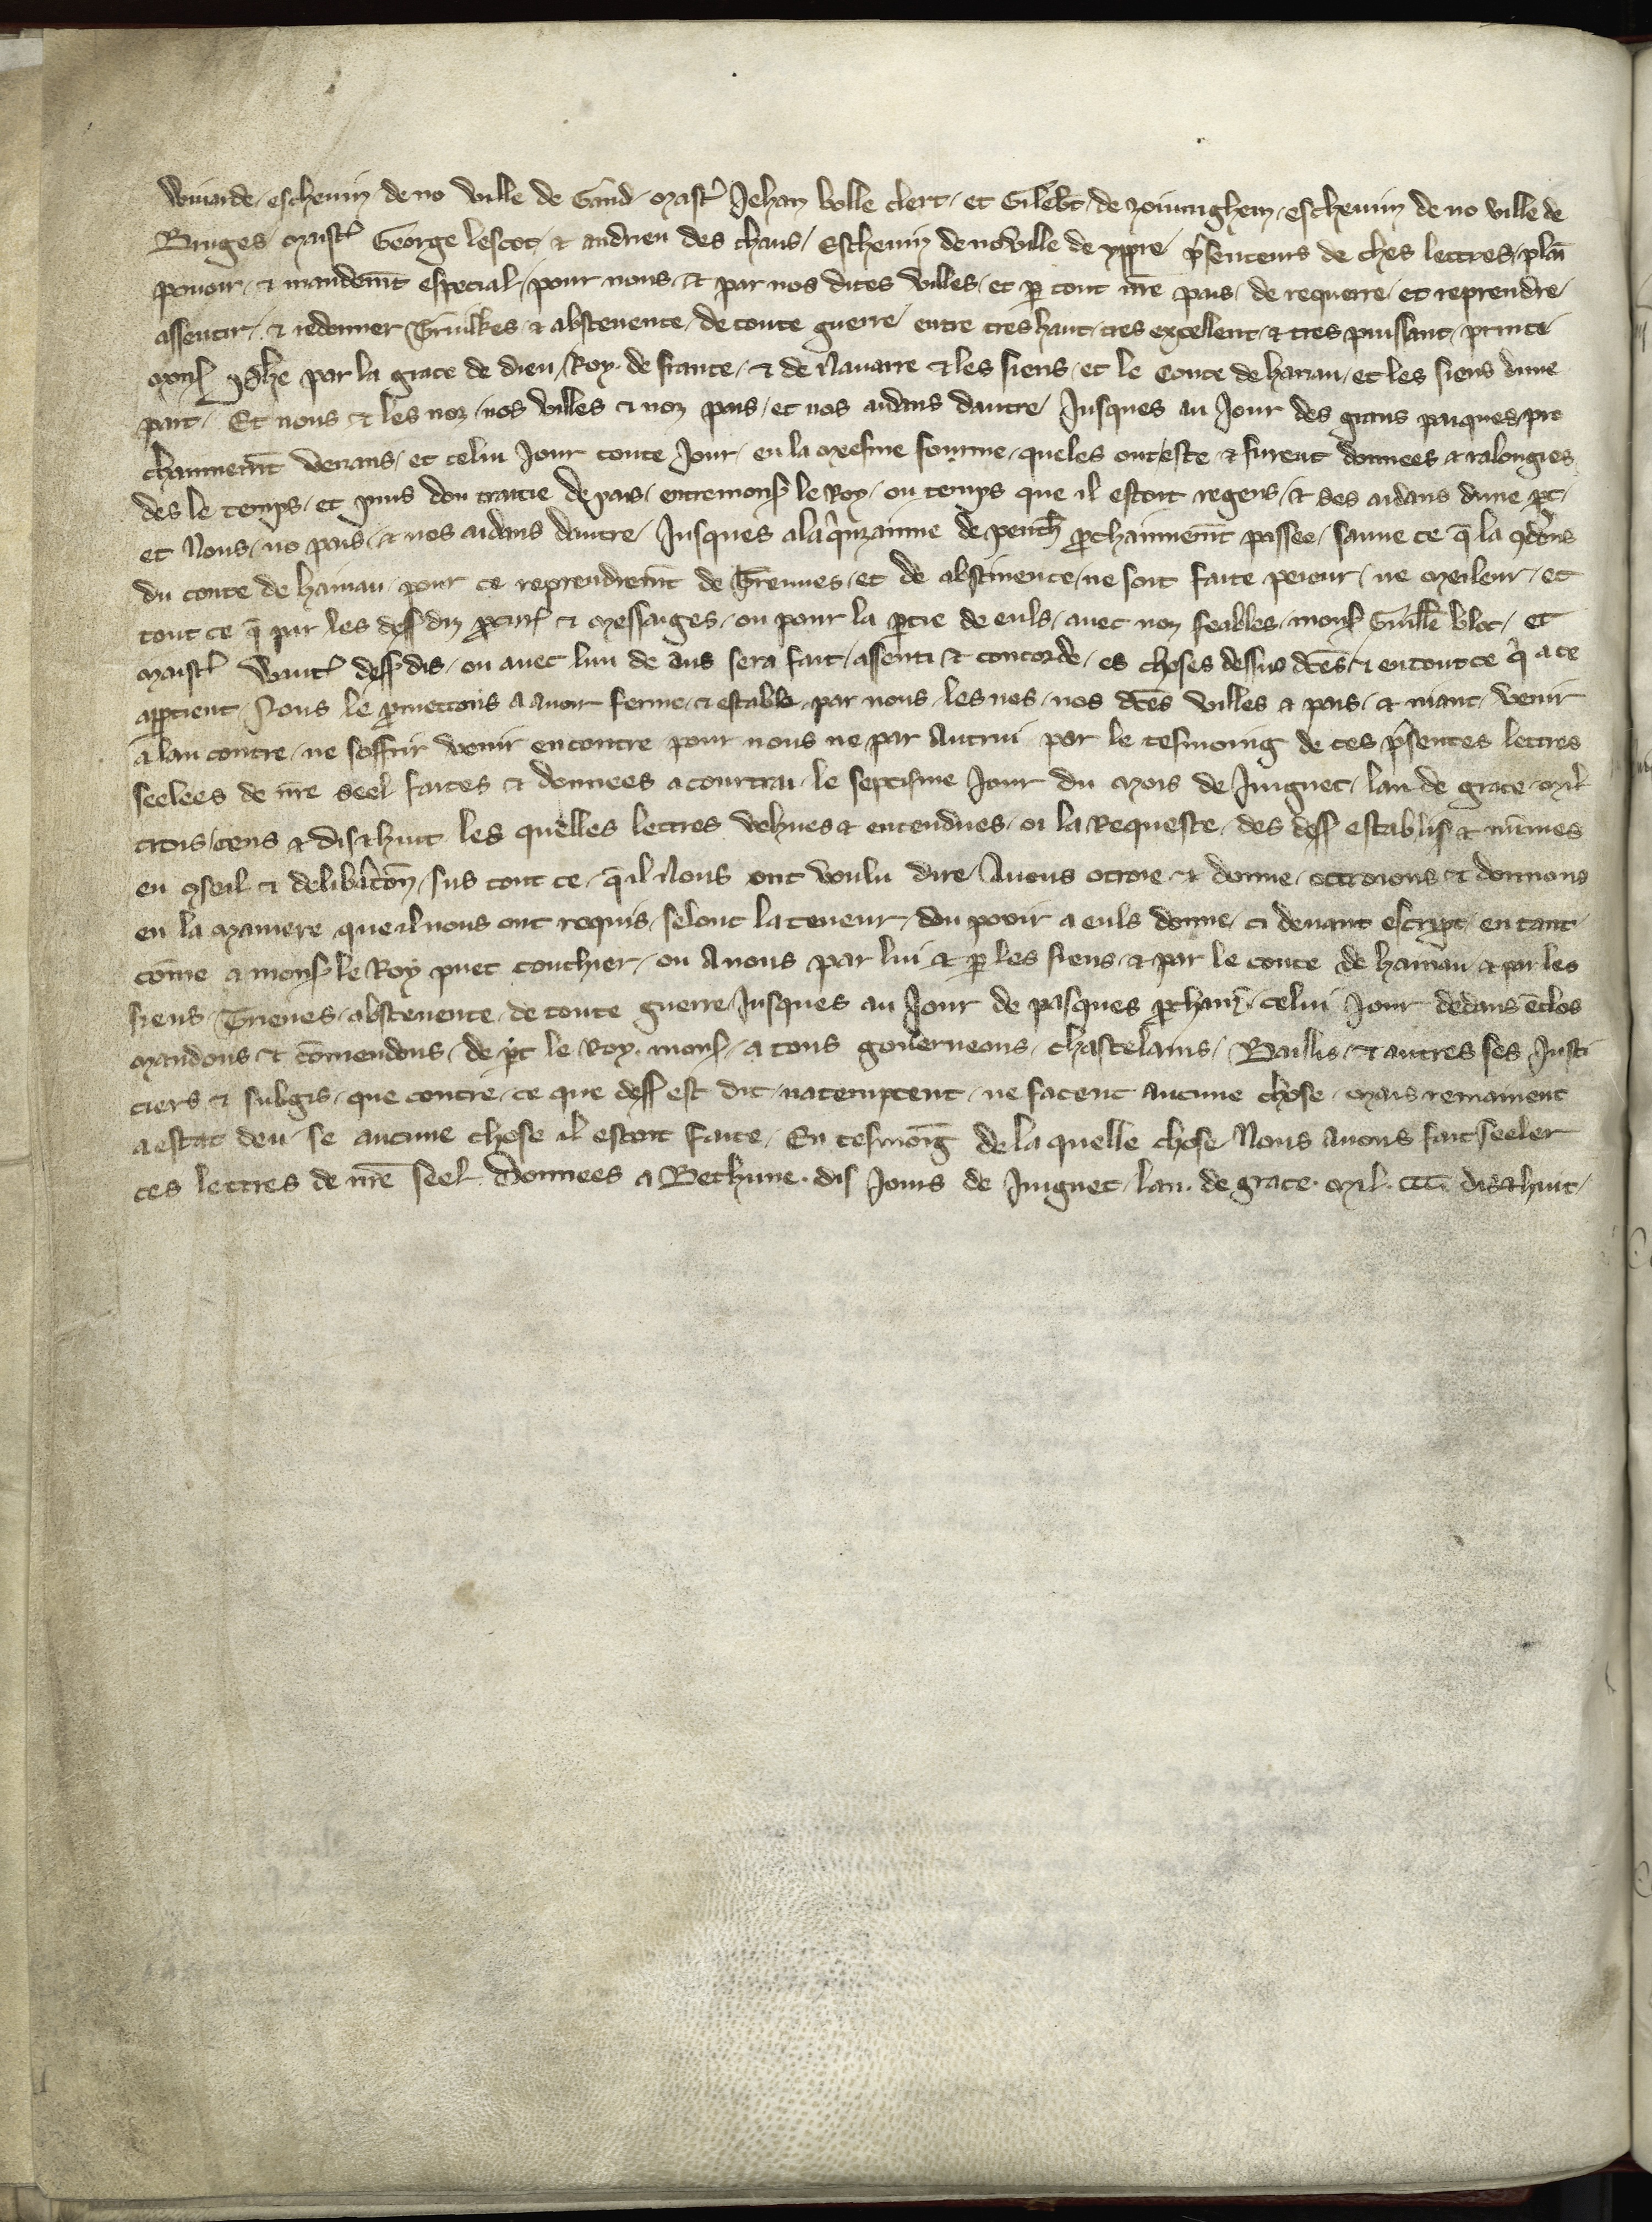 eschevin de no ville de Gand, Mastr̃ Jehan bolle clerc, et Gileb̃t de eschevin de no ville de
Bruges Maistr̃ George lescot, & andrieu des chans, Eschevin de no ville de yppre p̃senteurs de ches lettres, plaī
pouoir, & mandem̃t especial, pour nous, & par nos dites villes, et p̱ tout nr̃e pais, de requerre, et reprendre,
assentir, & redonner & abstenence, de toute guerre, entre tres haut, tres excellent, & tres puissant, prince
Mons̃ Ph̃e par la grace de dieu, Roy de france, & de Navarre & les siens, et le Conte de hanau, et les siens dune
part, Et nous & les noz, nos villes & noz pais, et nos aidans dautre, Jusques au Jour des grans pasques, pro
chainnem̃t venans, et celui Jour toute Jour, en la mesme fourme, queles ont este & furent donnees & ralongies
des le temps, et puis dou traitie de pais, entre mons̃ le Roy, ou temps que il estoit regens, & ses aidans dune p̱t,
et Nous, no pais, & nos aidans dautre, Jusques a la q̃nzainne de penth̃ p̱chainnem̃t passee, sauve ce q̄ la ꝯdic̃ons
du conte de hainau, pour ce reprendrem̃t de Treuues, et de abstinence, ne soit faite peieur, ne meileur, et
tout ce q̄ par les dess̃ diz p̱cur̃ & Messaiges, ou pour la p̱tie de euls, avec noz feables, mons̃ Guille bloc, et
maistr̃ Waut̃ dess̃ dis, ou avec lun de aus sera fait, assenti & concorde, es choses dessus dc̃es, & en tout ce q̃ a ce
app̱tient, Nous le p̱mettons a avoir ferme, & estable, par nous, les nos, nos dc̃es villes & pais, & niant, venir
a lan contre, ne soffrir venir encontre pour nous ne par Autrui par le tesmoing de ces p̃sentes lettres
seelees de nr̃e seel faites & donnees a Courtrai, le septisme Jour du Mois de Juignet, lan de grace, mil
trois, cens & dis & huit les quelles lettres vehues & entendues, oi la Requeste, des dess̃ establis &
en ꝯseil & delibãc̃on, sus tout ce, q̄ il Nous ont voulu dire, Avons otroie & donne, ottroions & donnons
en la maniere, que il nous ont requis, selont la teneur, dou povir a euls donne, ci devant escript, en tant
cōme a mons̃ le Roy puet touchier, ou A nous par lui & p̱ les siens, & par le conte de hainau & par les
siens, Trieues, abstenence, de toute guerre, Jusques au Jour de pasques p̱chaiñ, celui Jour dedans ēclos
Mandons & cōmendons, de p̱t le Roy, mons̃, a tous gouverneurs, chastelains, Baillis, & autres ses Justi
ciers & subgis, que contre, ce que dess̃ est dit, natemptent, ne facent aucune chose, mais remainent
a estat deu, se aucune chose il estoit faite, En tesmoīg de la quelle chose Nous avons fait seeler
ces lettres de nr̃e seel. Donnees a Bethune. dis Jours de Juignet, lan. de grace. mil. ccc. dis & huit,